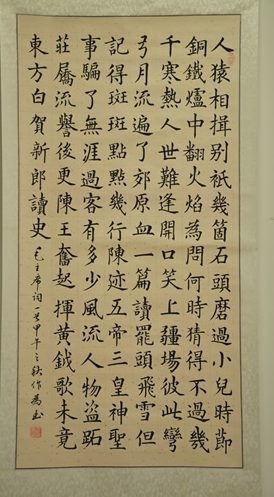 人猿相揖別祇幾箇石頭磨過小兒時節
銅鐵爐中翻火焰為問何時猜得不過幾
千寒熱人世難逢開口笑上疆場彼此彎
弓月流遍了郊原血一篇讀罷頭飛雪但
記得斑斑點點幾行陳迹五帝三皇神聖
事騙了無涯過客有多少風流人物盜跖
莊屩流譽後更陳王奮起揮黃鉞歌未竟
東方白賀新郎讀史 毛主席詞一首甲午之秋